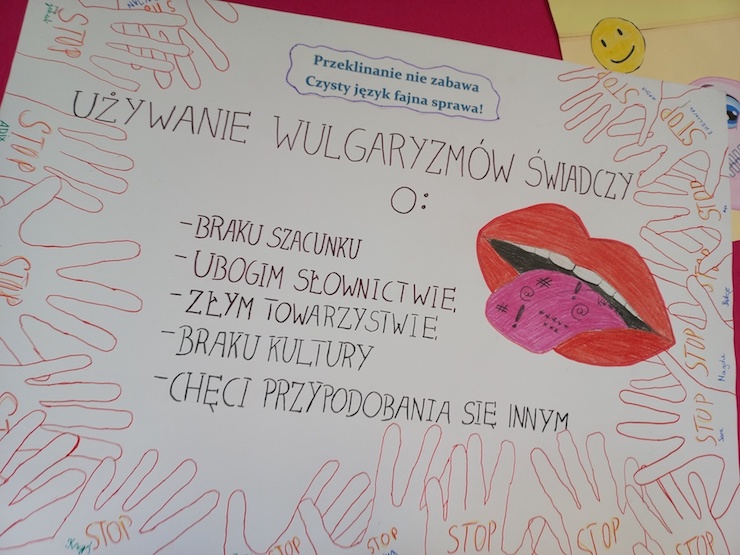 Przeklinanie nie zabawa
Czysty język fajna sprawa!
UŻYWANIE WULGARYZMÓW ŚWIADCZY
O:
-BRAKU SZACUNKU
-UBOGIM SŁOWNICTWIE
-ZŁYM TOWARZYSTWIE
-BRAKU KULTURY
-CHĘCI PRZYPODOBANIA SIĘ INNYM
STOP
STOP
STOP
STOP
STOP
STOP
STOP
STOP
STOP
Magda
STOP
STOP
STOP
STOP
STOP
STOP